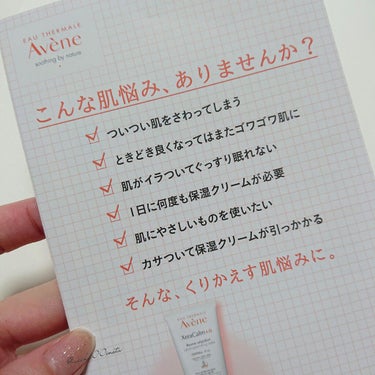 EAU THERMALE
Avène
soothing by nature
こんな肌悩み、ありませんか？
ついつい肌をさわってしまう
ときどき良くなってはまたゴワゴワ肌に
肌がイラついてぐっすり眠れない
1日に何度も保湿クリームが必要
肌にやさしいものを使いたい
カサついて保湿クリームが引っかかる
そんな、くりかえす肌悩みに。
EAU THERMALE
Avène
XeraCalm A.D